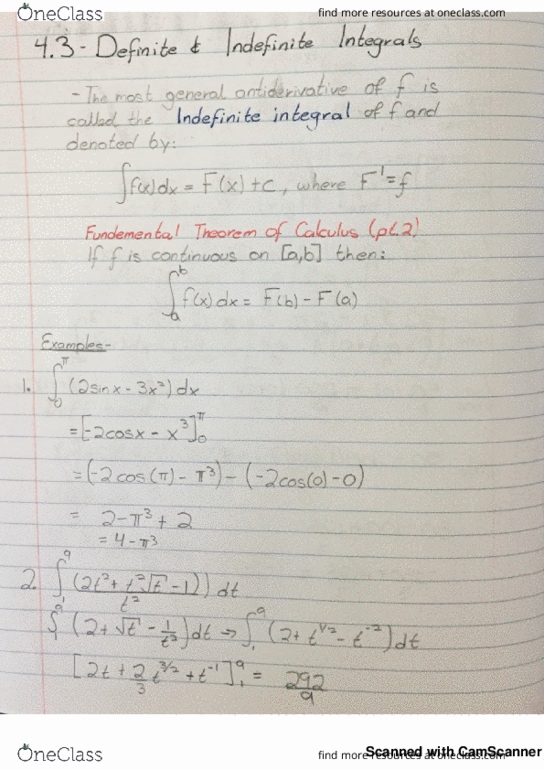 OneClass
find more resources at oneclass.com
4.3 - Definite & Indefinite Integrals
- The most general antiderivative of f is
called the Indefinite integral of f and
denoted by:
∫f(x)dx = F(x) + C, where F' = f
Fundemental Theorem of Calculus (pt.2)
If f is continuous on [a,b] then:
∫_a^b f(x)dx = F(b) - F(a)
Examples-
1. ∫_0^π (2sinx - 3x²)dx
= [-2cosx - x³]_0^π
= (-2cos(π) - π³) - (-2cos(0) - 0)
= 2 - π³ + 2
= 4 - π³
2. ∫_1^9 (2t² + t²√t - 1)/t² ) dt
∫_1^9 (2 + √t - 1/t²)dt → ∫_1^9 (2 + t^1/2 - t^-2)dt
[2t + 2/3 t^3/2 + t^-1]_1^9 = 292/9
OneClass
find more resources at oneclass.com
Scanned with CamScanner